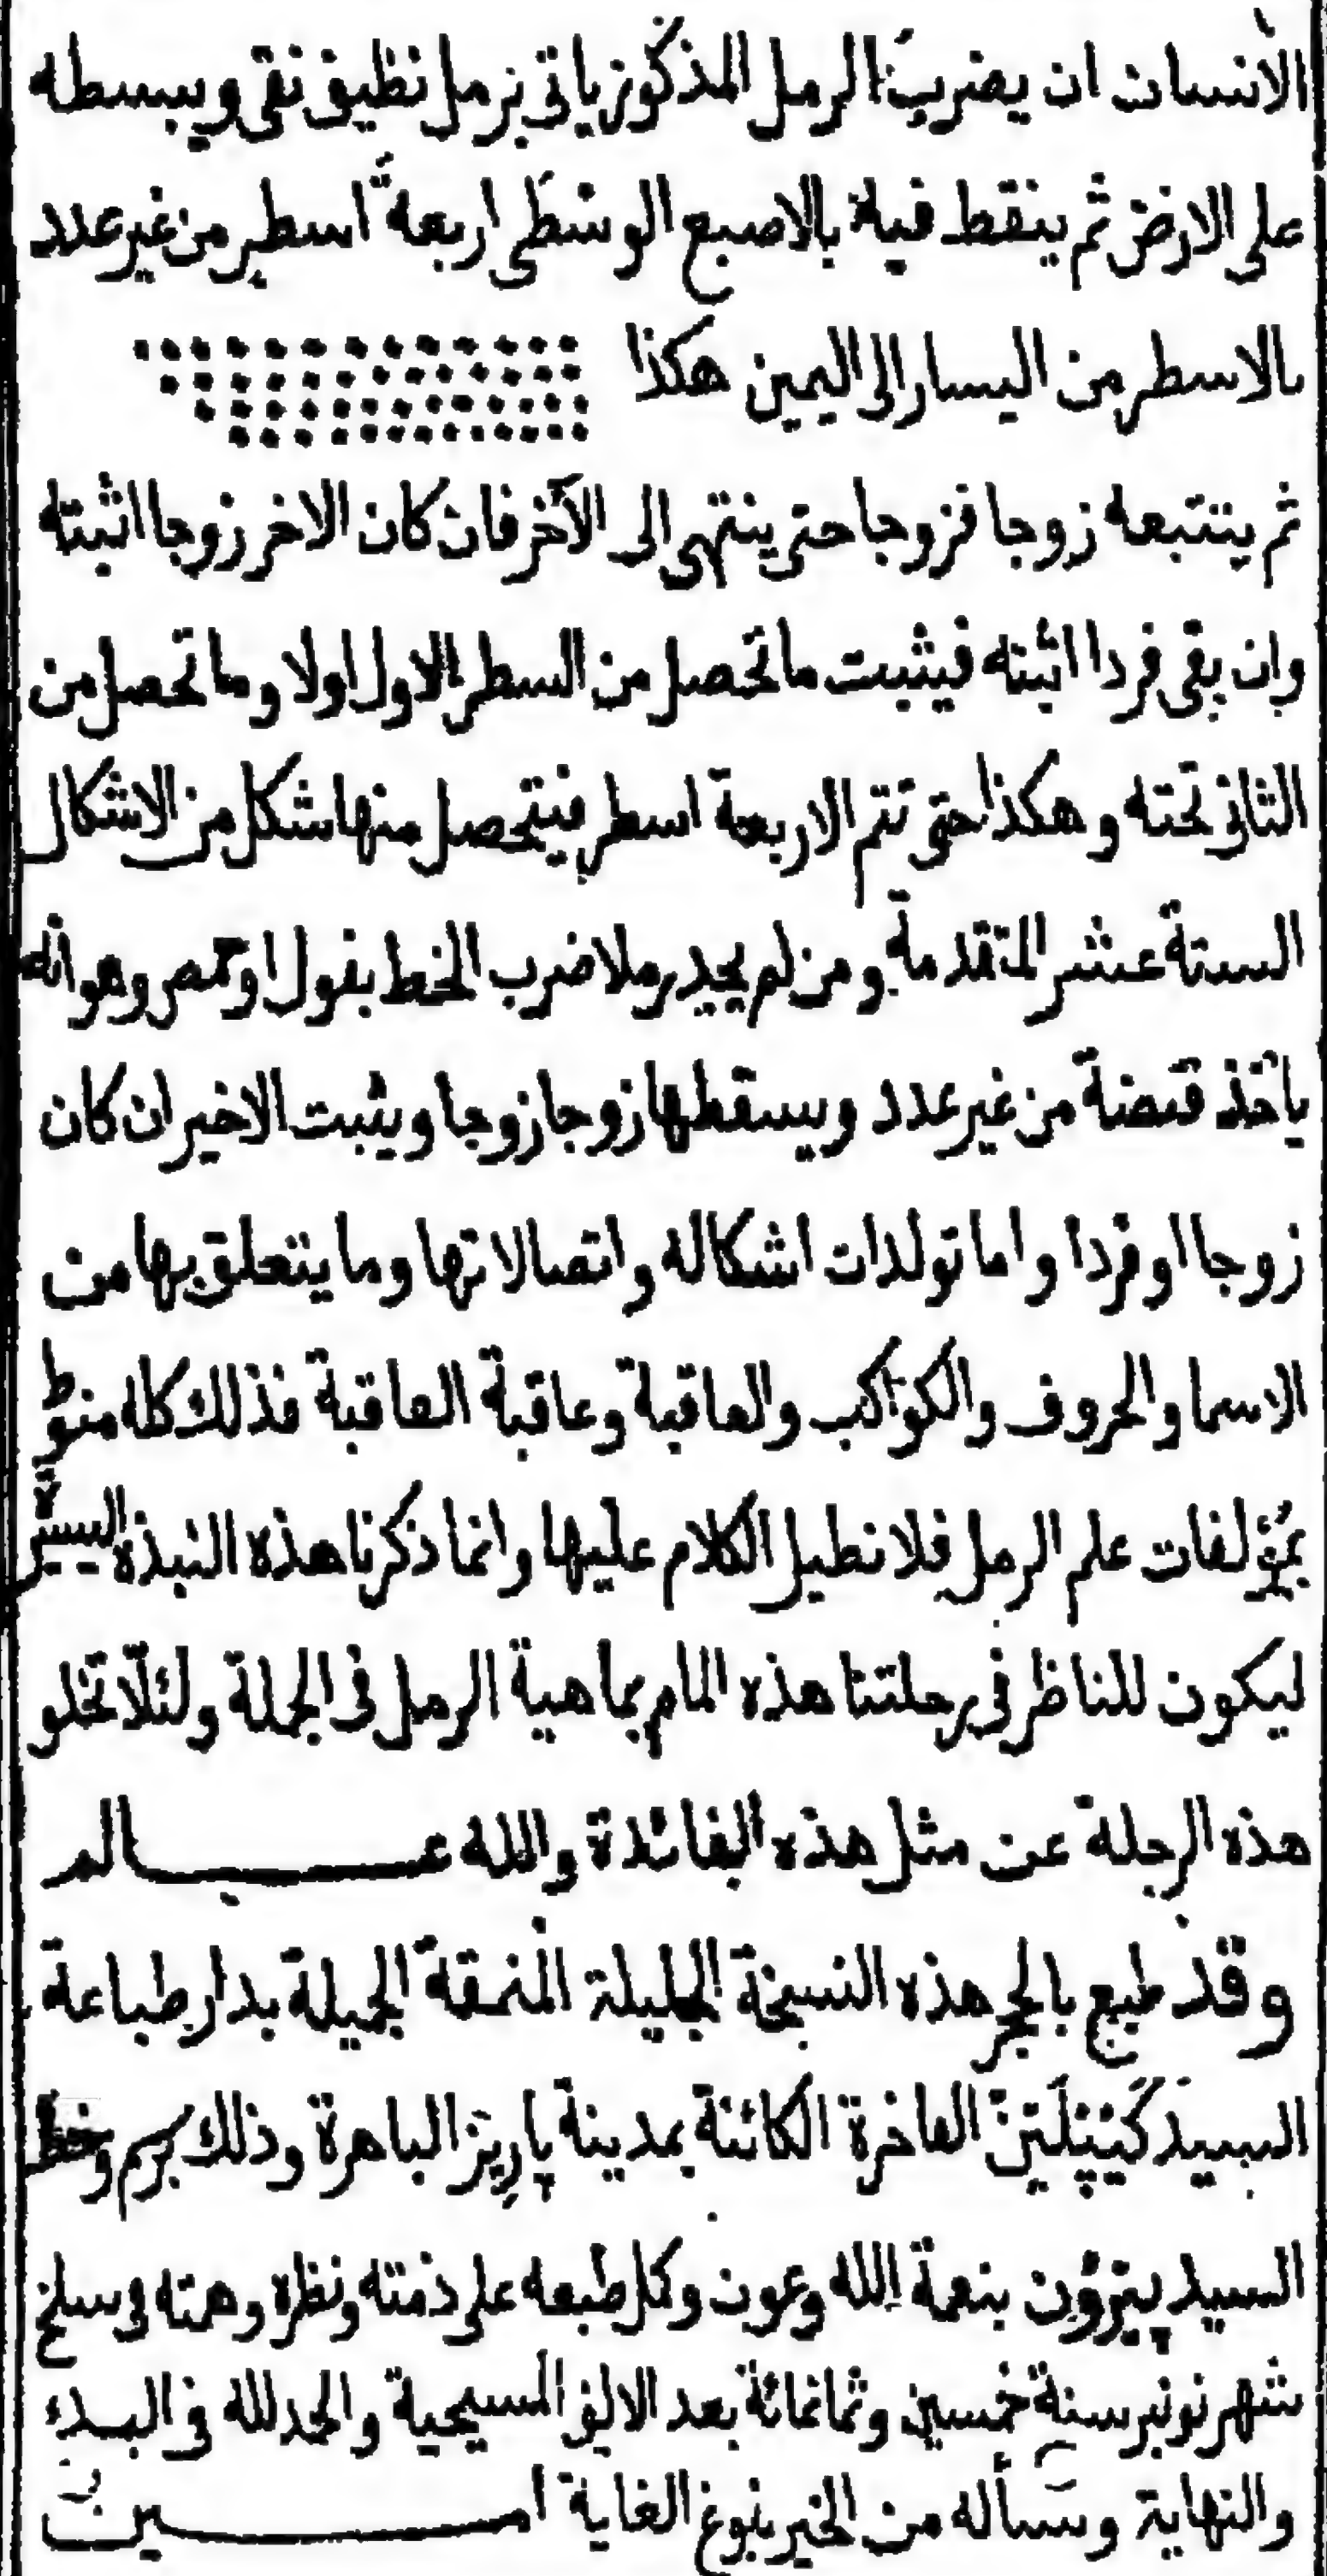 الانسان ان يضرب الرمل المذكور ياتى برمل نظيف نقى ويبسطه
على الارض ثم ينقط فيه بالاصبع الوسطى اربعة اسطر من غير عدد
بالاسطر من اليسار الى اليمين هكذا
ثم يتتبعه زوجا فزوجا حتى ينتهى الى الآخر فان كان الاخر زوجا اثبته
وان بقى فردا اثبته فيثبت ما تحصل من السطر الاول اولا وما تحصل من
الثانى تحته وهكذا حتى تتم الاربعة اسطر فيتحصل منها شكل من الاشكال
الستة عشر المتقدمة ومن لم يجد رملا ضرب الخط بفول او حمص وهو انه
ياخذ قبضة من غير عدد ويسقطها زوجا زوجا ويثبت الاخير ان كان
زوجا او فردا واما تولدات اشكاله واتصالاتها وما يتعلق بها من
الاسما والحروف والكواكب والعاقبة وعاقبة العاقبة فذلك كله منوط
بمؤلفات علم الرمل فلا نطيل الكلام عليها وانما ذكرنا هذه النبذة اليسيرة
ليكون للناظر فى رحلتنا هذه المام بماهية الرمل فى الجملة ولئلّا تخلو
هذه الرحلة عن مثل هذه الفائدة والله عــالم
وقد طبع بالحجر هذه النسخة الجليلة المنمقة الجميلة بدار طباعة
السيد كَيَپْلَيَنْ الفاخرة الكائنة بمدينة پاريز الباهرة وذلك برسم وخط
السيد پيرون بنعمة الله وعون وكمل طبعه على ذمته ونظره وهمته فى سلخ
شهر نونبر سنة خمسين وثمانمائة بعد الالف المسيحية والحمد لله فى البدء
والنهاية ونسأله من الخير بلوغ الغاية امـــين